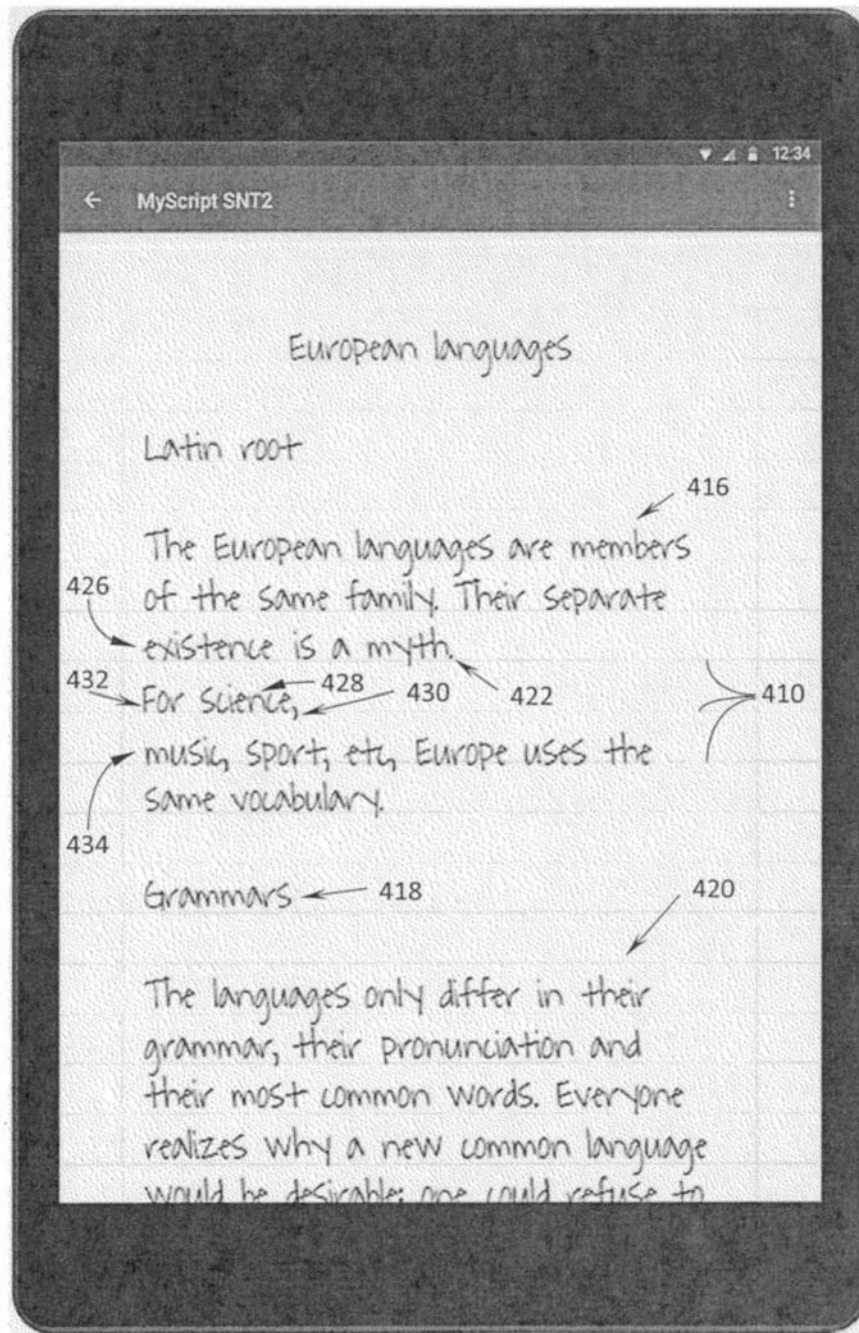 12:34
MyScript SNT2
European languages
Latin root
416
The European languages are members
of the same family. Their separate
426
existence is a myth.
432
428
430
422
410
For science,
music, sport, etc, Europe uses the
same vocabulary.
434
Grammars
418
420
The languages only differ in their
grammar, their pronunciation and
their most common words. Everyone
realizes why a new common language
would be desirable: one could refuse to